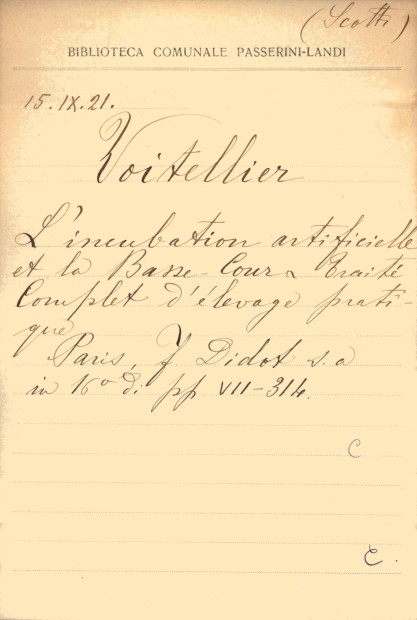 (Scotti)
BIBLIOTECA COMUNALE PASSERINI-LANDI
15.IX.21.
Voitellier
L'incubation artificielle
et la Basse-Cour Traité
Complet d'élevage prati-
que
Paris, F. Didot s.a
in 16º di pp VII-314.
C
C.